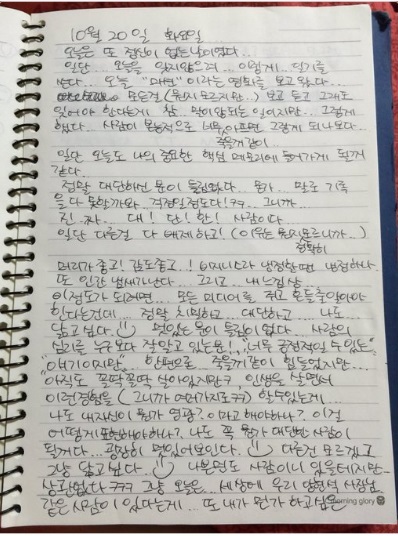 10월 20일 화요일
오늘은 또 정신이 없는 날이었다...
일단... 오늘을 잊지않으려... 이렇게... 일기를
쓴다... 오늘 "대변"이라는 영화를 보고 왔다...
모든걸 (뭔지모르지만..) 보고 듣고 그래도
있어야 한다는게 참.. 말이 안되는 일이지만... 그렇게
했다.. 사람이 몸적으로 너무 아프면 그렇게 되나보다...
죽을거같이
일단 오늘도 나의 중요한 핵심 메모리에 들어가게 될거
같다...
정말 대단하신 분이 들어왔다... 뭔가... 말로 기록
을 다 못할까와.. 걱정일정도다!ㅋㅋ.. 그니까...
진.짜... 대! 단! 한! 사람이다
일단 다른걸 다 배제하고! (이유는 뭔지모르니까...)
정확히
머리가 좋고! 감도좋고..! 비지니스라 냉정할땐 냉정하나..
또 인간 냄새가난다... 그리고... 내 느낌상...
이정도가 되려면... 모든 미디어들 쥐고 흔들줄 알아야
한다는건데... 정말 치밀하고... 대단하고... 나도
닮고싶다.. 멋있는 분이 틀림이 없다... 사람의
심리를 누구보다 잘 알고있는분! "너무 긍정적일 수 있는"
"얘기이지만" 한편으론 죽을거같이 힘들었지만...
아직도 꼴딱꼴딱 살아있지만ㅋ 인생을 살면서
이런경험을 (그니까 여러가지로ㅋㅋ) 할수있는게...
나도 내자신이 뭔가 영광?이라고 해야하나? 이걸
어떻게 표현해야하나? 나도 꼭 뭔가 대단한 사람이
된거다... 굉장히 멋있어보인다.. 다른건 모르겠고
그냥 닮고싶다... 나쁜면도 사람이니 있을테지만...
상관없다 ㅋㅋㅋ 그냥 오늘은... 세상에 우리 양현석 사장님
같은 사람이 있다는게... 또 내가 뭔가 하고싶은
morning glory